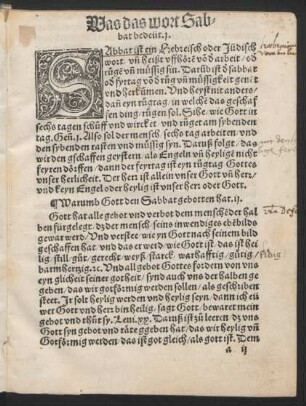 Was das wort Sab-
bat bedeut. j.
SAbbat ist ein Hebreisch oder Jüdisch
wort vñ heißt vffhörẽ võ arbeit / od
rügẽ vñ müssig sin. Darũb ist d sabbat
od fyrtag võ rüg vñ müssigkeit genãt
vnd herkũmen. Vnd heyst nit anders
dañ eyn rügtag. in welchẽ das geschaf
fen ding rügen sol. Sihe wie Gott in
sechs tagen schüff vnd wircket vnd rüget am sybenden
tag. Gen. j. Also sol der mensch sechs tag arbeiten / vnd
den sybenden rasten vnd müssig syn. Daruß folgt / das
wir den gschaffen geysten als Engeln vñ heyligẽ nicht
feyren döffen / dann der feyrtag ist eyn rügtag Gottes
vnser herlicheit. Der herr ist allein vnser Gott vñ herr /
vnd keyn Engel oder heylig ist vnser herr oder Gott.
¶ Warumb Gott den Sabbat gebotten hat. ij.
Gott hat alle gebot vnd verbot dem menschẽ der hal
ben fürgelegt / dz der mensch seins inwendiges ebilds
gewar werd / Vnd verstee wie yn Gott nach seinem bild
geschaffen hat vnd das er werd / wie Gott ist. das ist hei
lig. still. güt. gerecht. weyß starck warhafftig / gütig /
barmhertzig. ꝛc. Vnd all gebot Gottes fodern von vns
eyn glicheit seiner gotheit / synd auch vns der halben ge
geben / das wir gotförmig werden sollen / als geschriben
steet. Jr solt heylig werden vnd heylig seyn / dann ich eü
wer Gott vnd Herr bin heilig. sagt Gott / bewaret mein
gebot vnd thüt sy. Leui. xx. Daruß ist zü leeren dz vns
Gott syn gebot vnd räte ggeben hat / das wir heylig vñ
Gotförmig werden das ist got gleich / als gott ist. Dem
a ij